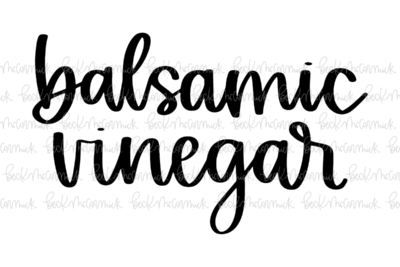 balsamic
vinegar